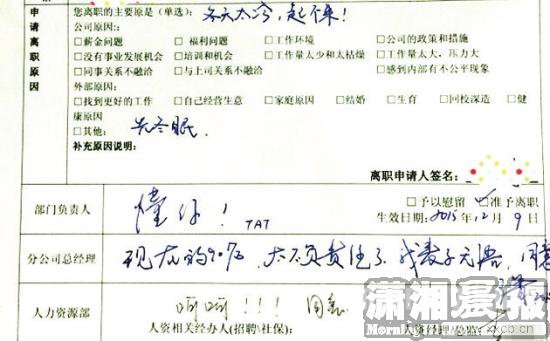 申 您离职的主要原是(单选): 冬天太冷,起不来!
请 公司原因:
离 □薪金问题 □ 福利问题 □工作环境 □公司的政策和措施
职 □没有事业发展机会 □培训和机会 □工作量太少和太枯燥 □工作量太大,压力大
原 □同事关系不融洽 □与上司关系不融洽 □感到内部有不公平现象
因 外部原因:
□找到更好的工作 □自己经营生意 □家庭原因 □结婚 □生育 □回校深造 □健
康原因
□其他: 去冬眠.
补充原因说明:
离职申请人签名:
部门负责人 懂你! TAT □予以慰留 准予离职
生效日期: 2015.12月9日
分公司总经理 现在的90后,太不负责任了.我表示无语,同意
人力资源部 呵呵!!! 同意
人资相关经办人(招聘\社保): 人资经理\总监:
潇湘晨报